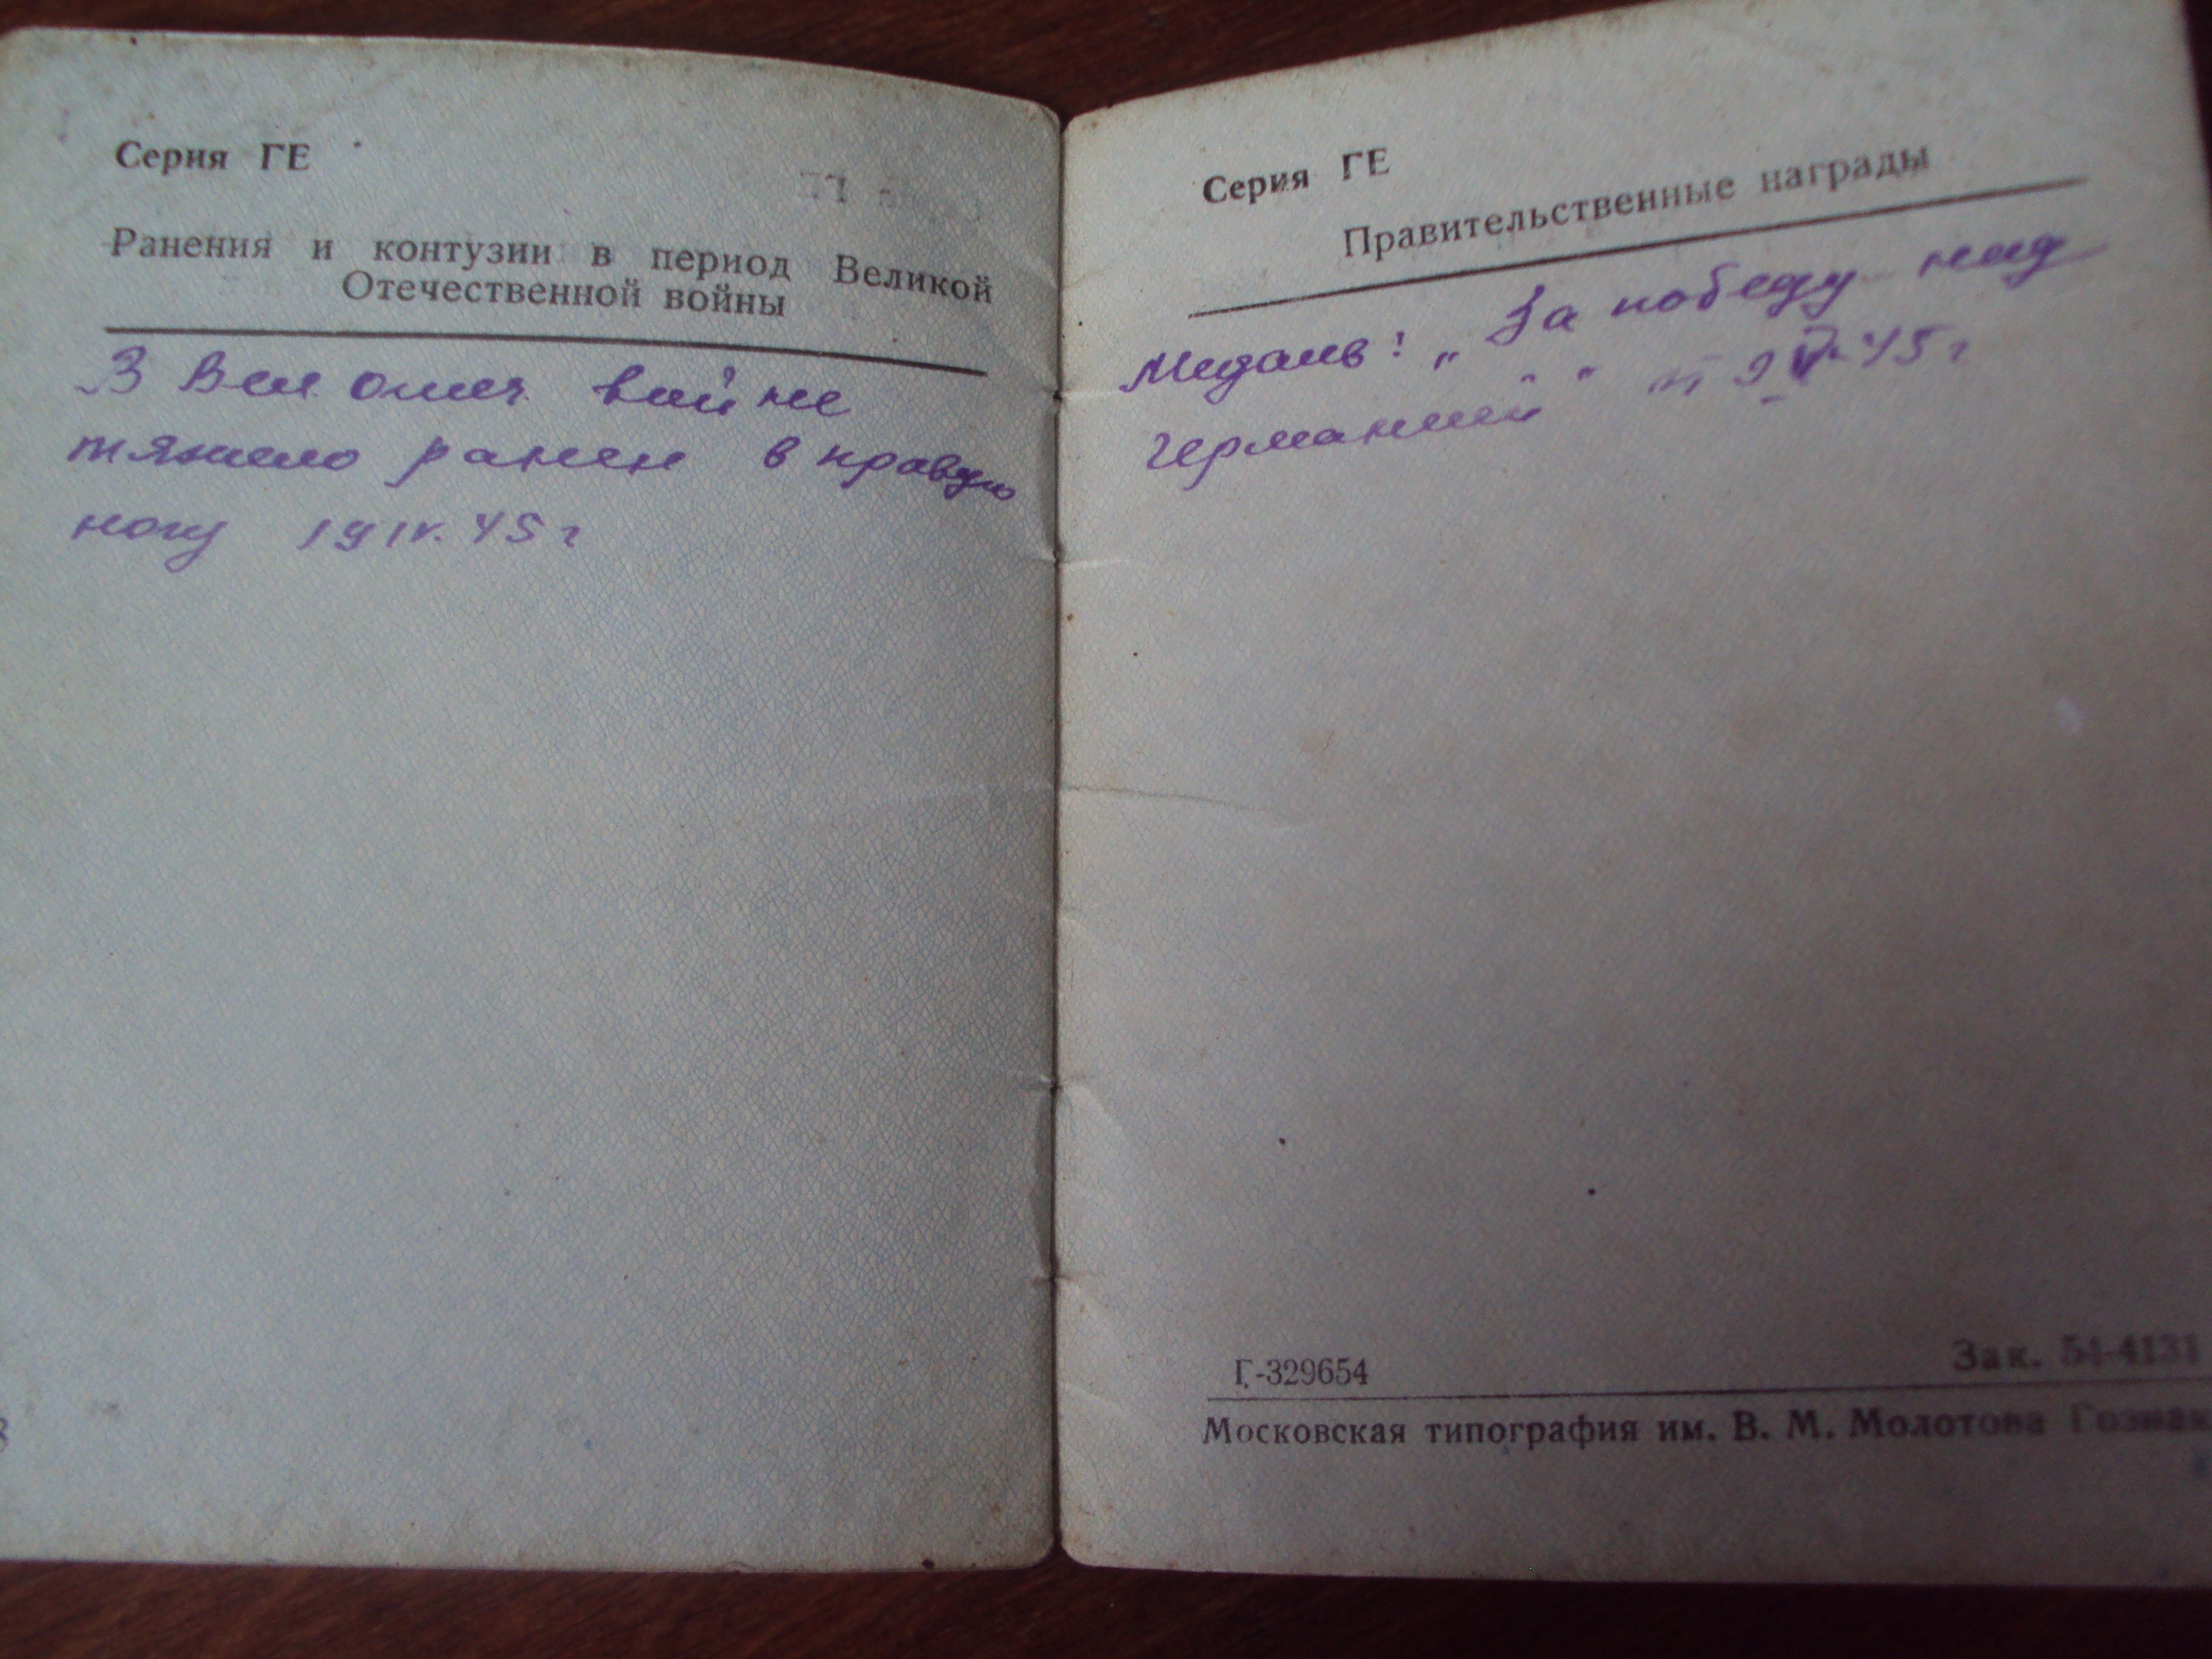 Серия ГЕ
Ранения и контузии в период Великой
Отечественной войны
В Вел. отеч. войне
тяжело ранен в правую
ногу 19 IV. 45 г
Серия ГЕ
Правительственные награды
Медаль: „За победу над
Германией" 9 V. 45 г
Г-329654
Зак. 54-4131
Московская типография им. В. М. Молотова Гознак